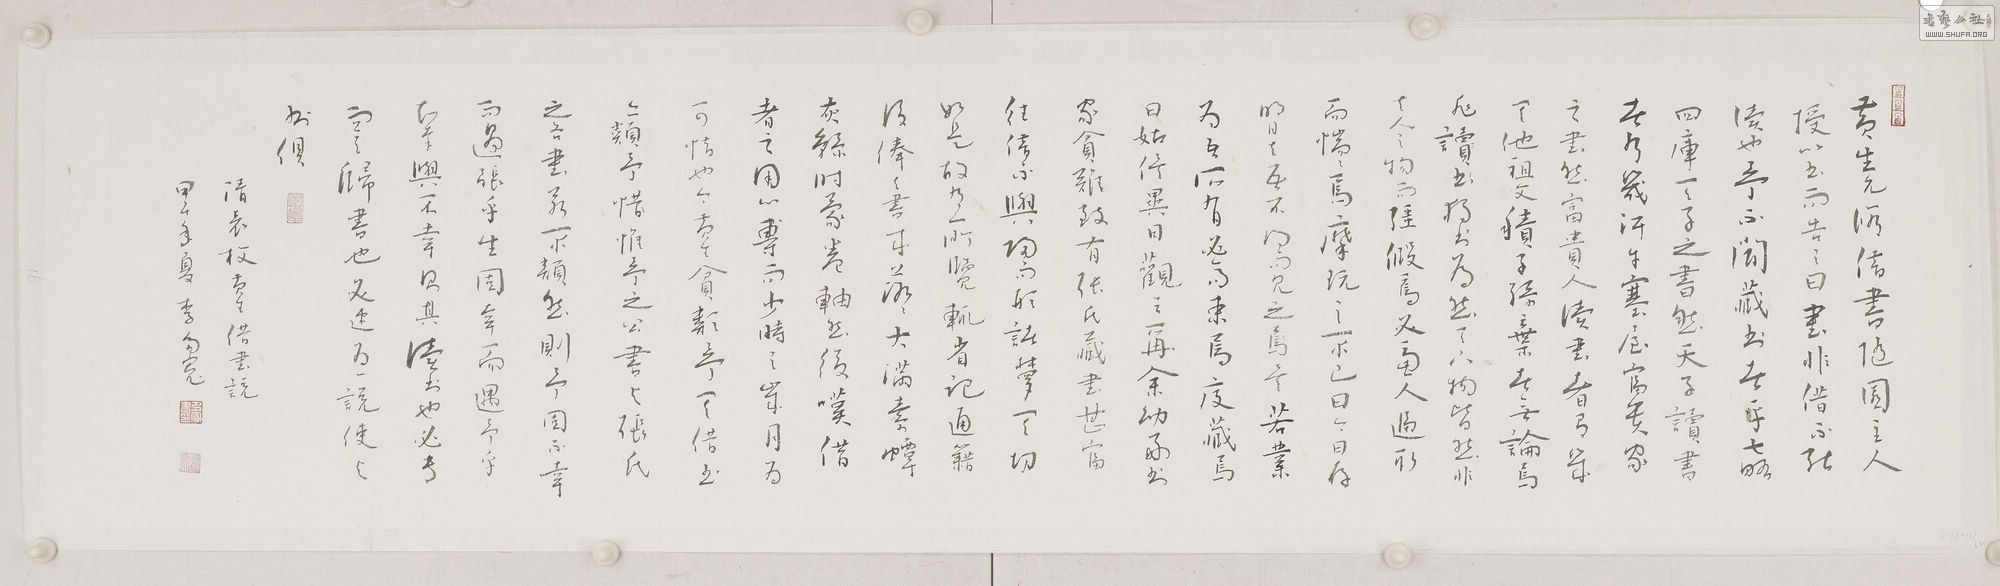 黄生允修借書隨園主人
授以書而告之曰書非借不能
讀也子不聞藏書者乎七略
四庫天子之書然天子讀書
者有幾汗牛塞屋富貴家
之書然富貴人讀書者有幾
其他祖父積子孫棄者無論焉
非獨書為然天下物皆然非
夫人之物而强假焉必慮人逼取
而惴惴焉摩玩之不已曰今日存
明日去吾不得而見之矣若業
為吾所有必高束焉庋藏焉
曰姑俟異日觀云爾余幼好書
家貧難致有張氏藏書甚富
往借不與歸而形諸夢其切
如是故有所覽輒省記通籍
後俸去書來落落大滿素蟫
灰絲時蒙卷軸然後嘆借
者之用心專而少時之歲月為
可惜也今黄生貧類予其借書
亦類予惜惟予之公書與張氏
之吝書若不類然則予固不幸
而遇張乎生固幸而遇予乎
知幸與不幸則其讀書也必專
而其歸書也必速為一説使與
書俱
清袁枚黄生借書説
甲午年夏李
書藝公社
WWW.SHUFA.ORG